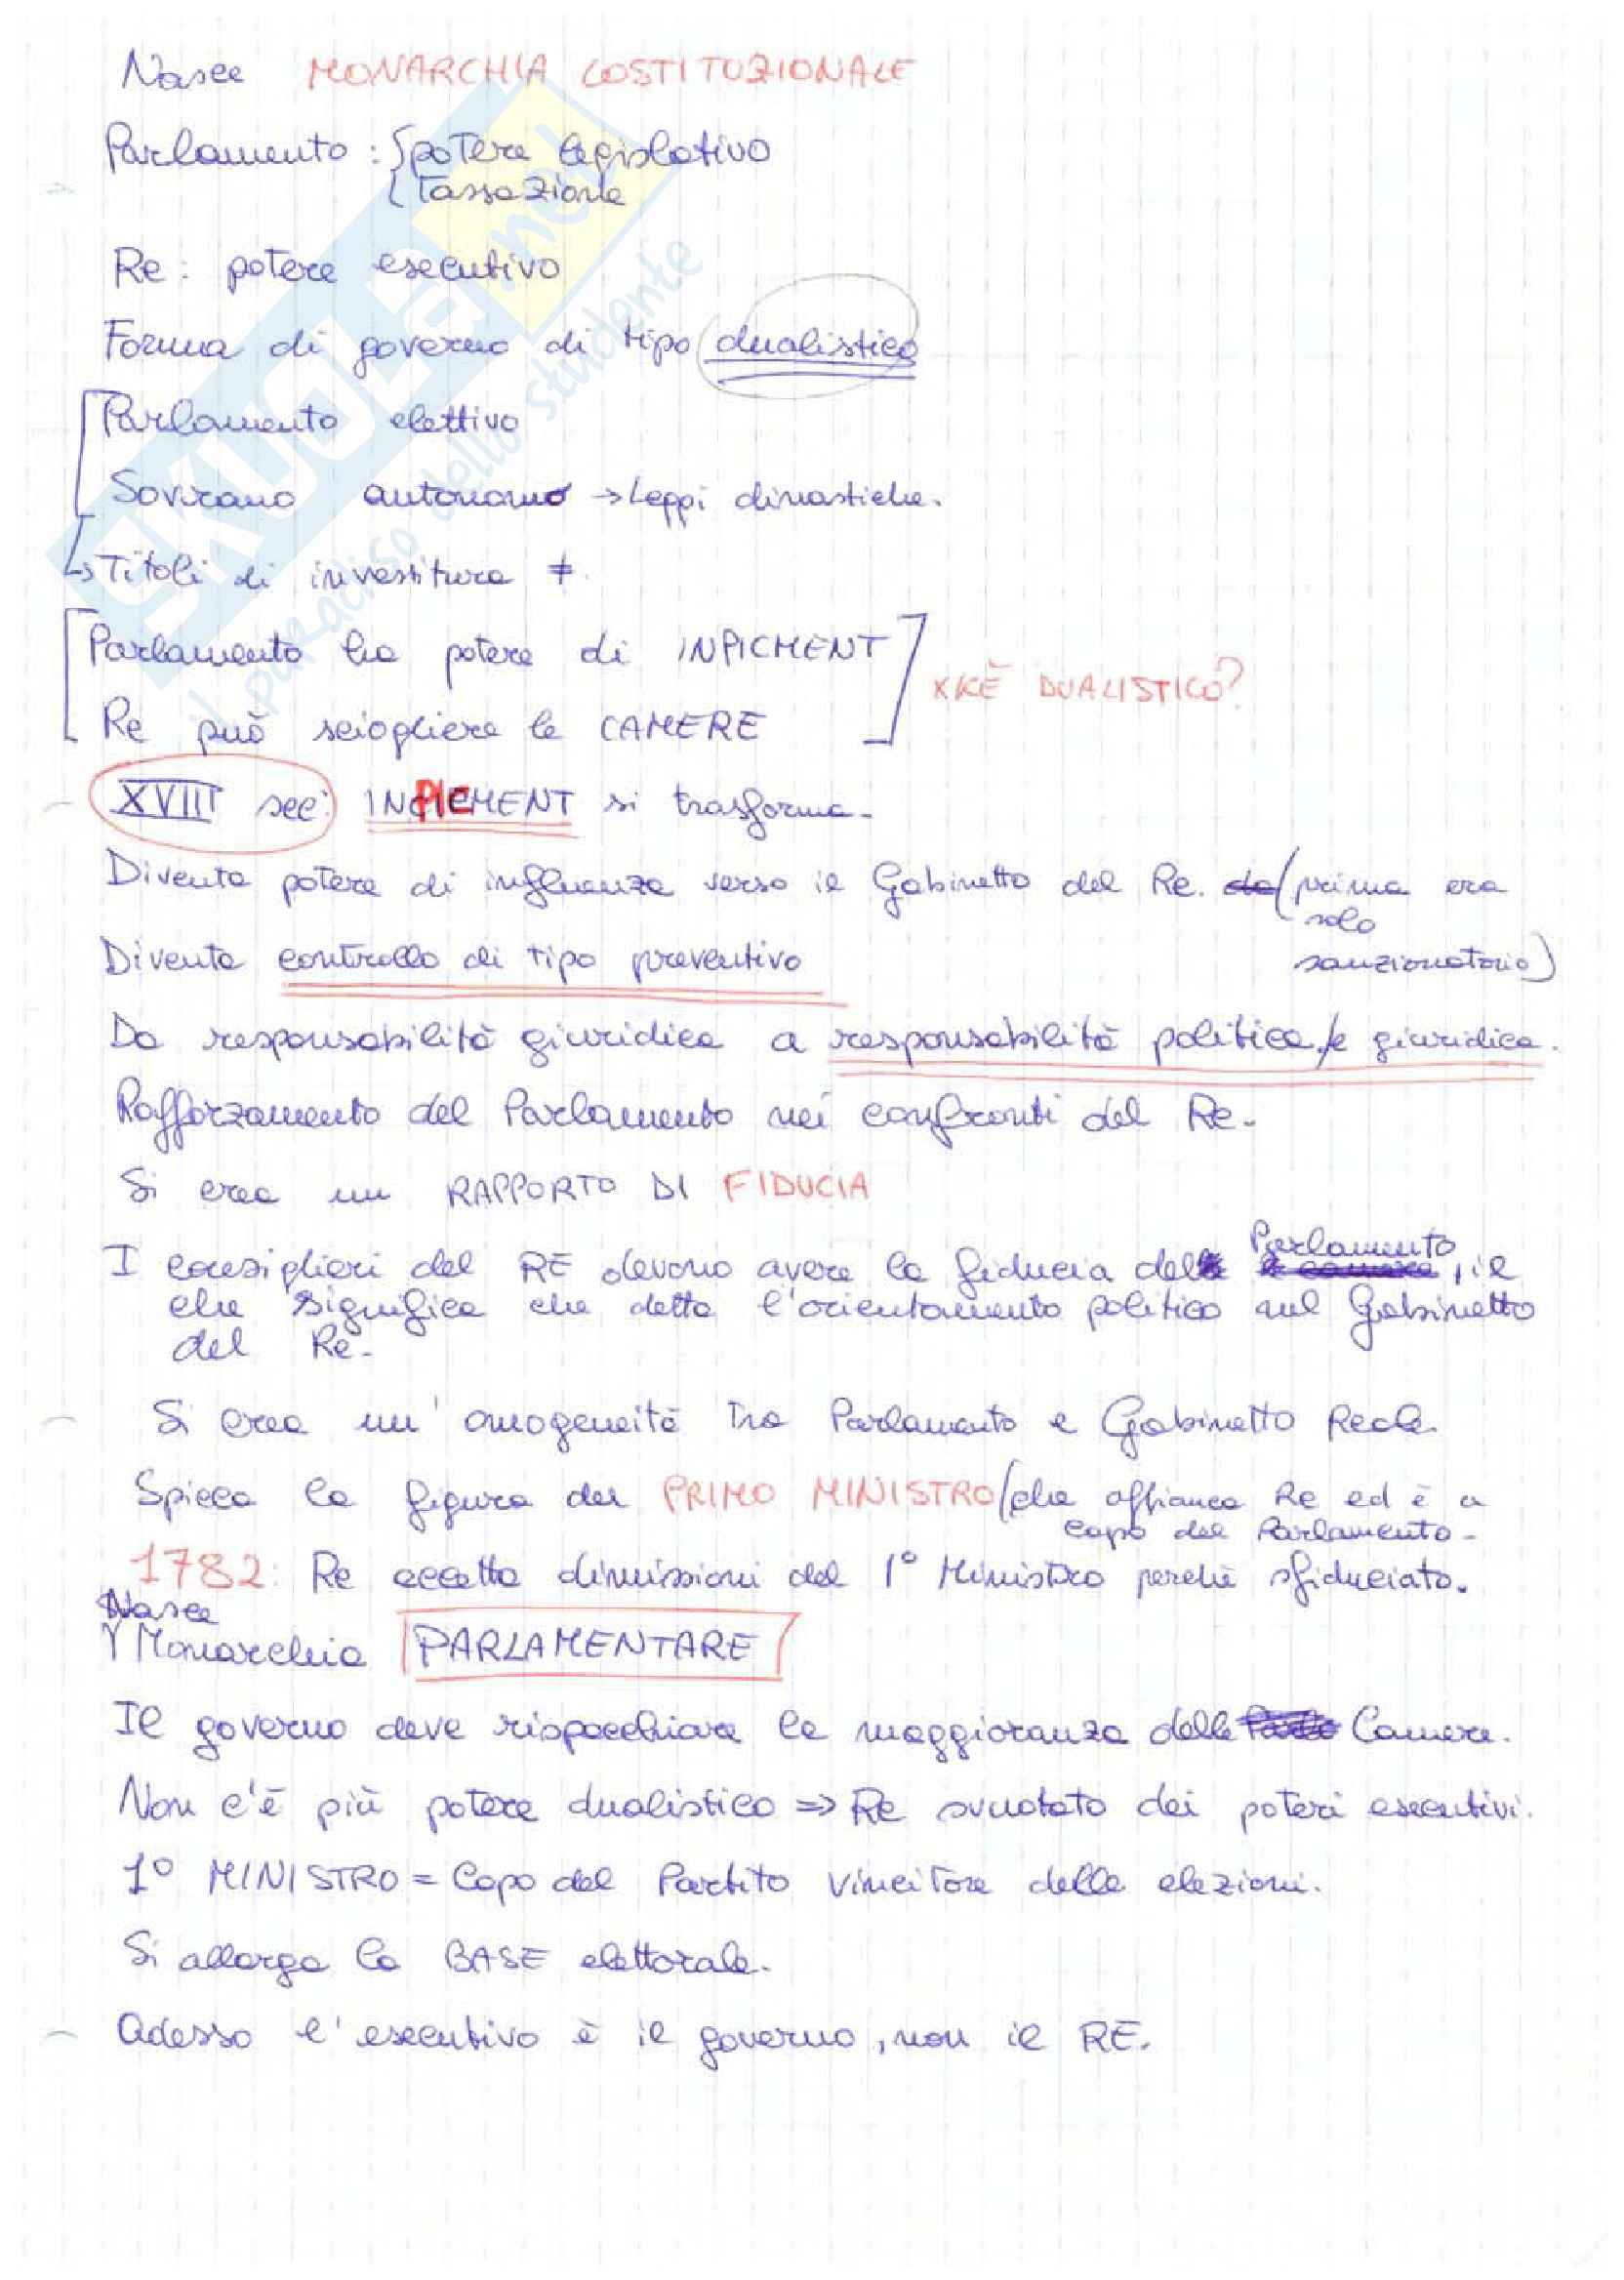 Nasce MONARCHIA COSTITUZIONALE
Parlamento : { potere legislativo
{ Tassazione
Re : potere esecutivo
Forma di governo di tipo dualistico
Parlamento elettivo
Sovrano autonomo → Leggi dinastiche.
↳ Titoli di investitura ≠.
Parlamento ha potere di INPICMENT
XKÈ DUALISTICO?
Re può sciogliere le CAMERE
XVIII sec: INPICMENT si trasforma.
Diventa potere di influenza verso il Gabinetto del Re. da (prima era
solo
sanzionatorio)
Diventa controllo di tipo preventivo
Da responsabilità giuridica a responsabilità politica, e giuridica.
Rafforzamento del Parlamento nei confronti del Re.
Si crea un RAPPORTO DI FIDUCIA
I consiglieri del RE devono avere la fiducia del Parlamento, il
che significa che detta l'orientamento politico nel Gabinetto
del Re.
Si crea un' omogeneità tra Parlamento e Gabinetto Reale.
Spicca la figura del PRIMO MINISTRO (che affianca Re ed è a
capo del Parlamento.
1782: Re accetta dimissioni del 1° Ministro perchè sfiduciato.
Nasce
Monarchia PARLAMENTARE
Il governo deve rispecchiare la maggioranza delle Camere.
Non c'è più potere dualistico => Re svuotato dei poteri esecutivi.
1° MINISTRO = Capo del Partito vincitore delle elezioni.
Si allarga la BASE elettorale.
Adesso l'esecutivo è il governo, non il RE.
SKUOLA.net
il paradiso dello studente